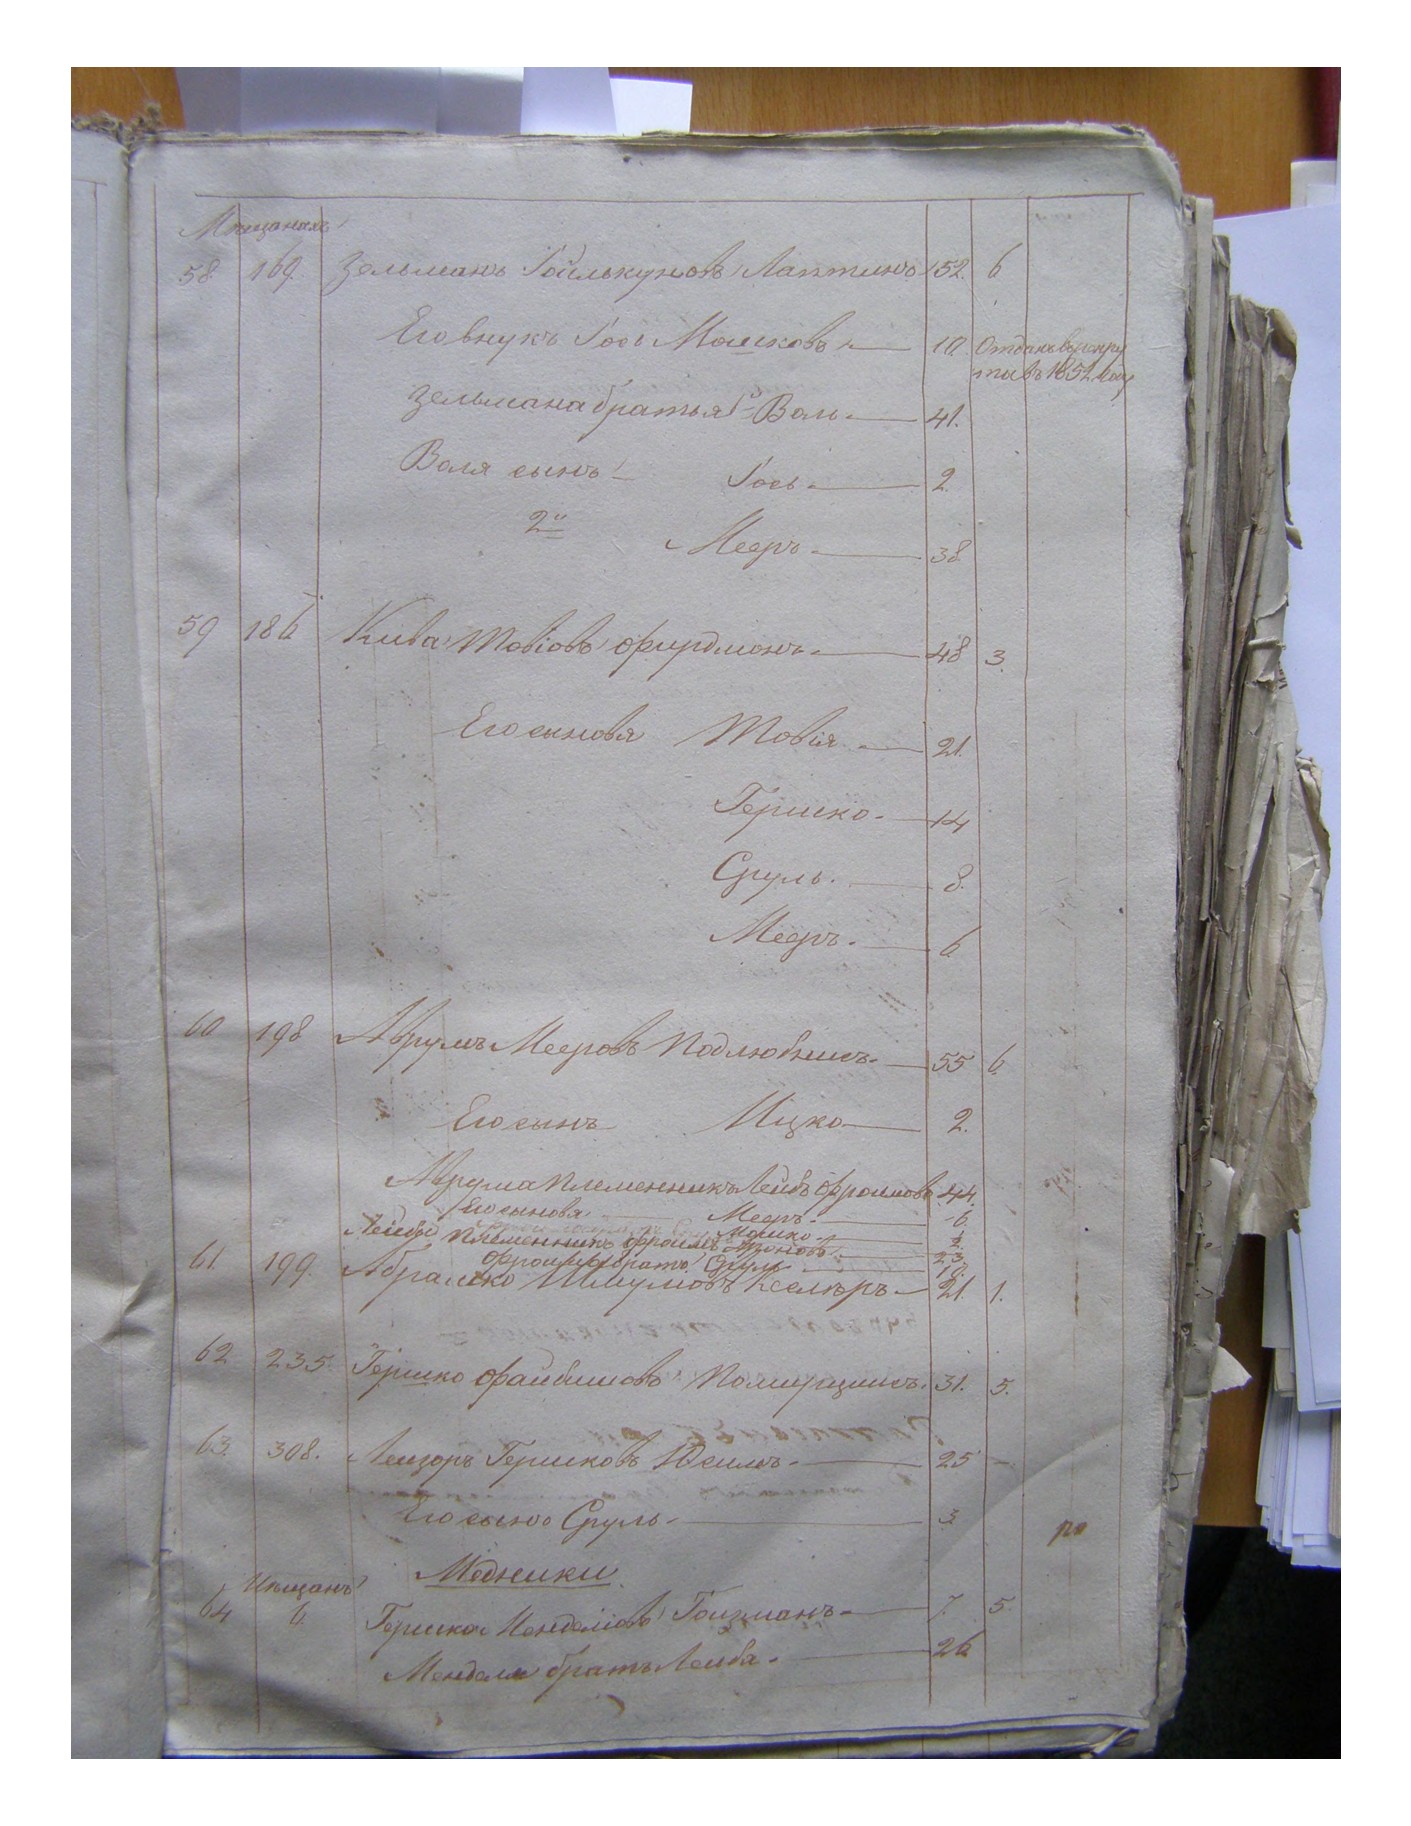 Мещанахъ
58. 169. Зельманъ Лаптинъ 152. 6
Его внукъ Іось Мошковъ 10. Отданъ въ рекру
ты въ 1852 году
Зельмана братья 1й Воль. 41.
Воля сынъ Іось. 2.
2й Мееръ. 38
59 186 Кива Товіовъ Фирдманъ. 48 3.
Его сыновя Товія. 21.
Гершко. 14
Сруль. 8.
Мееръ. 6
60 198 Аврумъ Мееровъ 55 6.
Его сынъ Ицко 2.
Аврума племенникъ Лейбъ Фроимовъ 44.
Его сыновя Мееръ. 6.
Мошко.
Лейбы племенникъ Фроимъ 23
Фроима братъ Сруль
61. 199. Абрамко Шмуловъ 21. 1.
62 235 Гершко Файбишовъ 31. 5.
63. 308. Лейзоръ Гершковъ 25 -
Его сынъ Сруль. 3
ро
Медники
Мещанъ
64 6. Гершко Менделіовъ Гойзманъ 7. 5.
Менделя братъ Лейба. 26